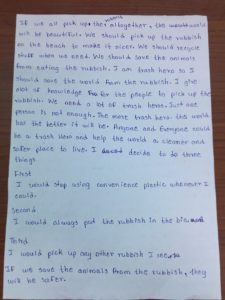 If we all pick up the rubbish altogether, the world
will be beautiful. We should pick up the rubbish
on the beach to make it nicer. We should recycle
stuff when we need. We should save the animals
from eating the rubbish. I am trash hero so I
should save the world from the rubbish. I give
alot of knowledge for the people to pick up the
rubbish. We need a lot of trash heros. Just one
person is not enough. The more trash hero the world
has the better it will be. Anyone and Everyone could
be a trash Hero and help the world a cleaner and
safer place to live. I decide to do three
things
First
I would stop using convenience plastic whenever I
could.
Second
I would always put the rubbish in the bin.
Third
I would pick up any other rubbish I see
If we save the animals from the rubbish, they
will be safer.